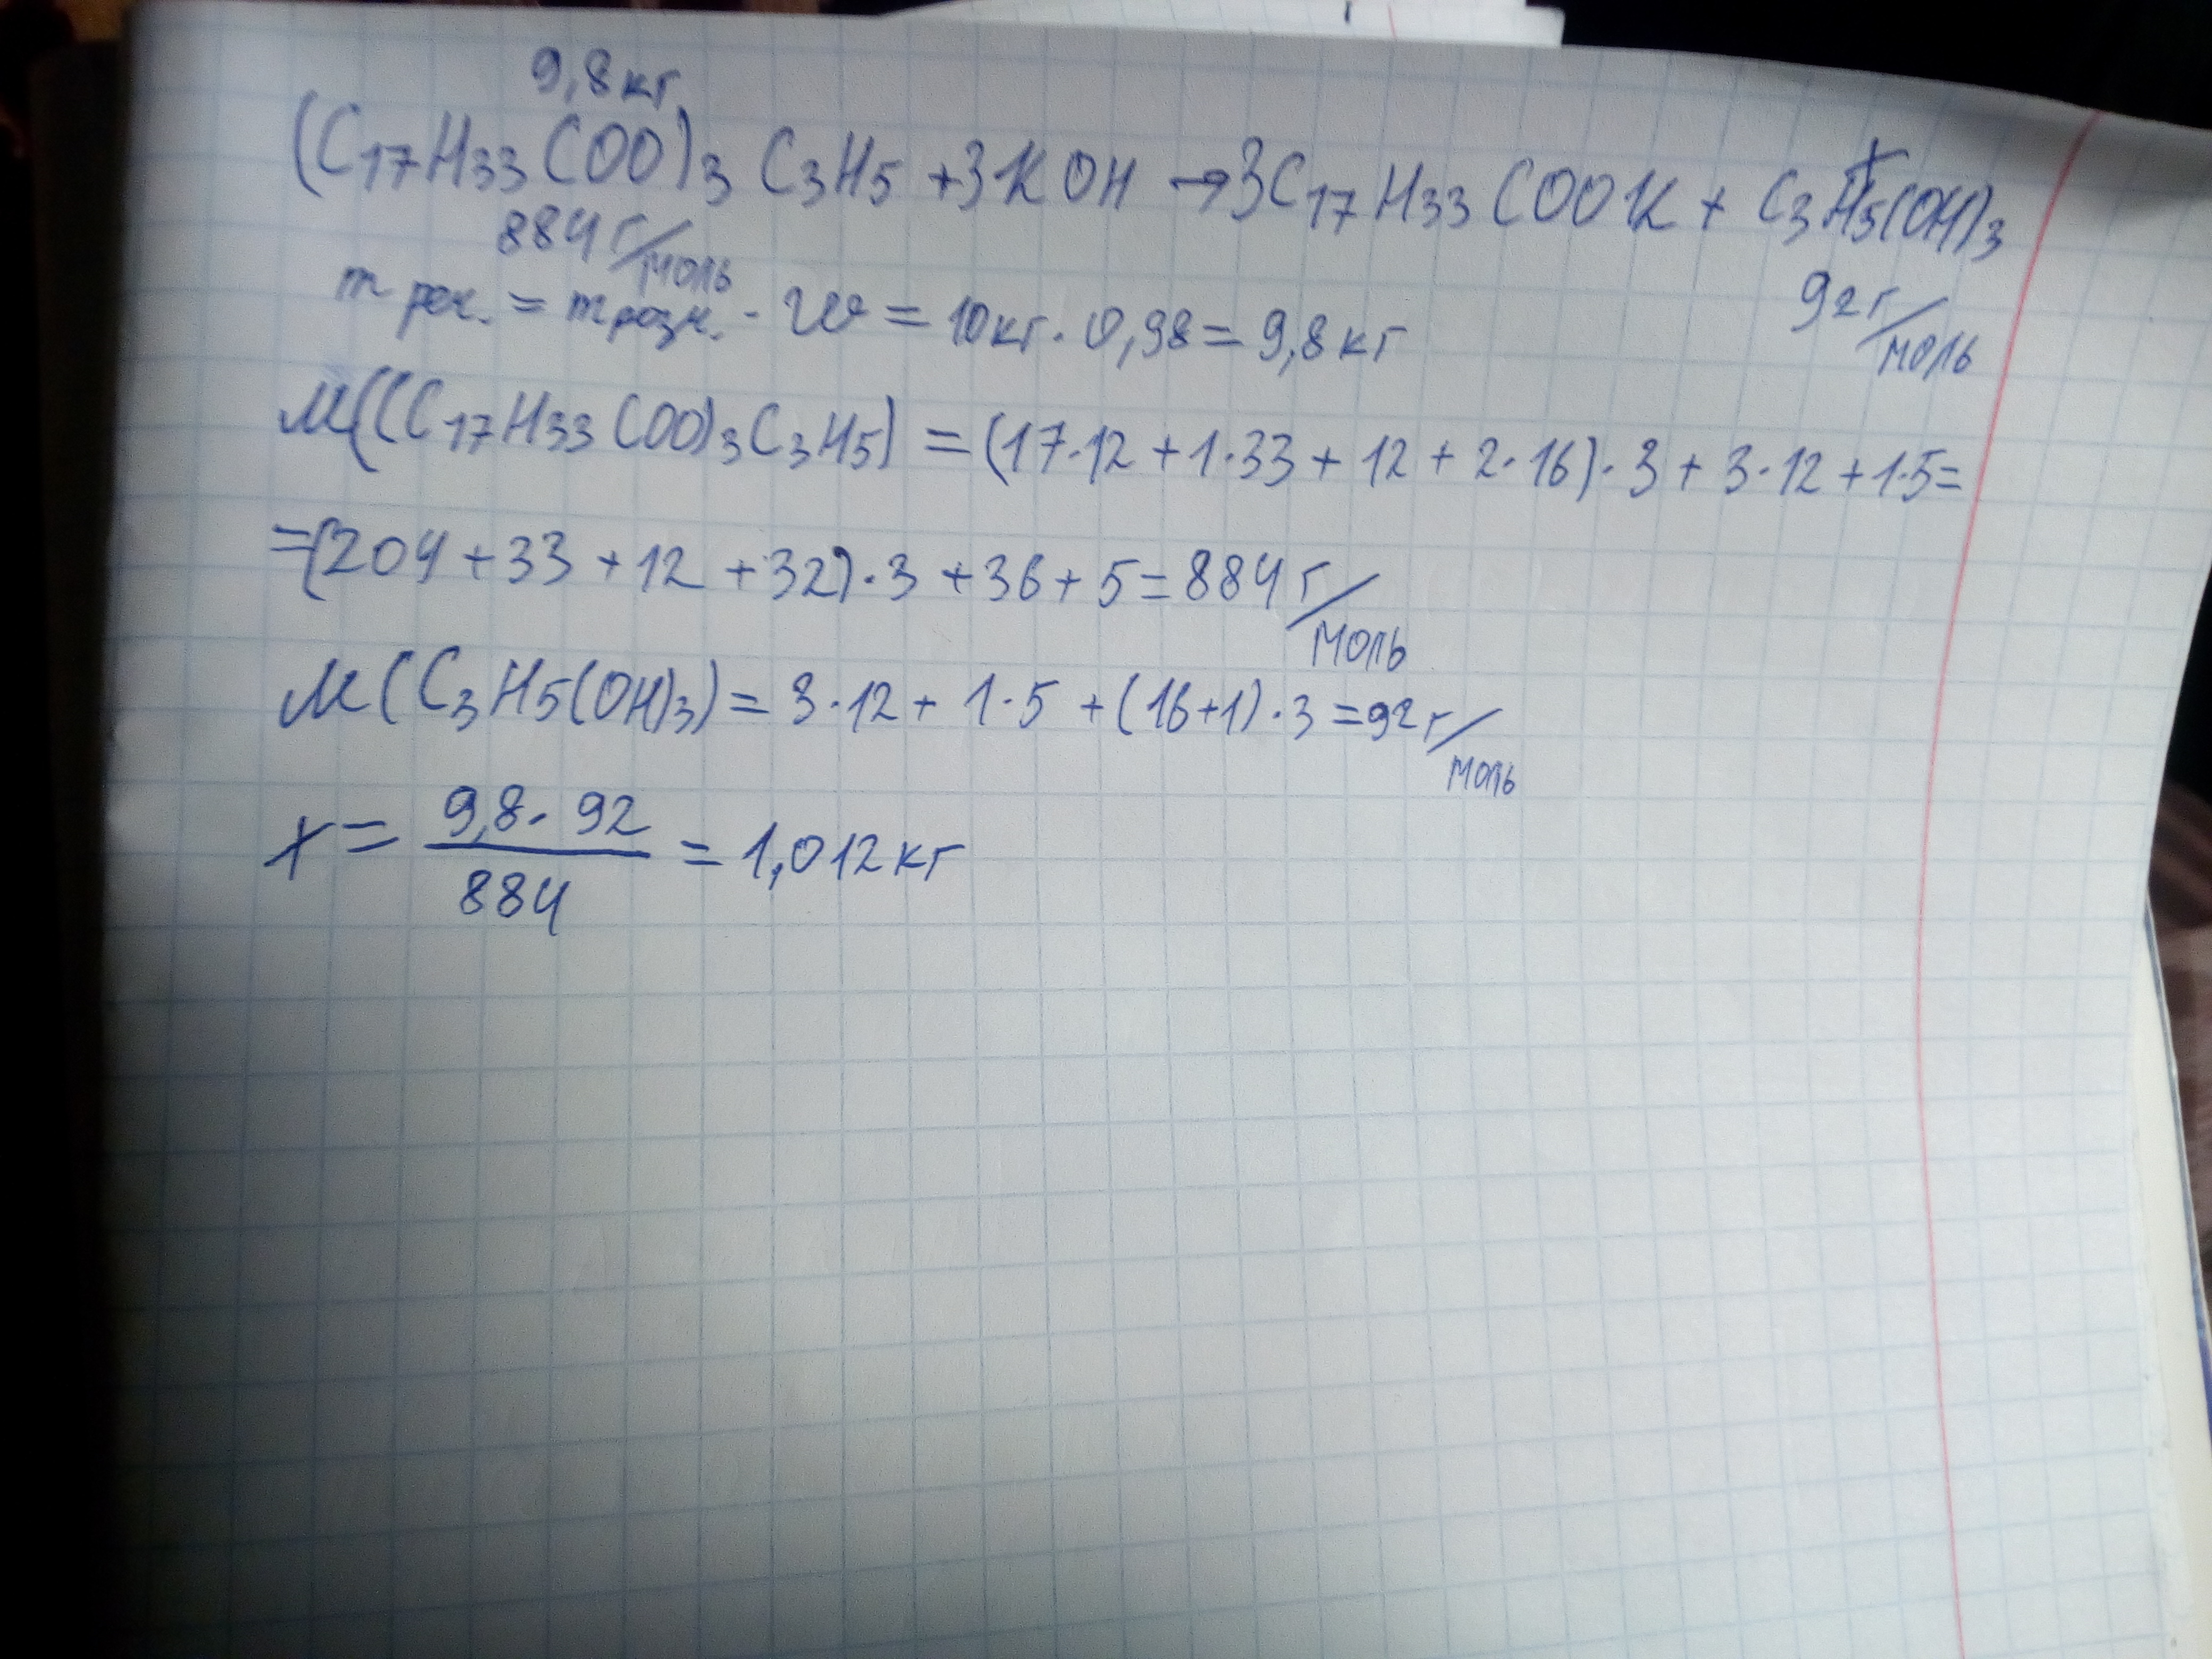 9,8 кг
(C17H33COO)3C3H5 + 3KOH → 3C17H33COOK + C3H5(OH)3
x
884 г/моль
92 г/моль
m реч. = m розч. · W = 10кг · 0,98 = 9,8 кг
M((C17H33COO)3C3H5) = (17·12 + 1·33 + 12 + 2·16)·3 + 3·12 + 1·5 =
= (204 + 33 + 12 + 32)·3 + 36 + 5 = 884 г/моль
M(C3H5(OH)3) = 3·12 + 1·5 + (16+1)·3 = 92 г/моль
x = 9,8·92 / 884 = 1,012 кг